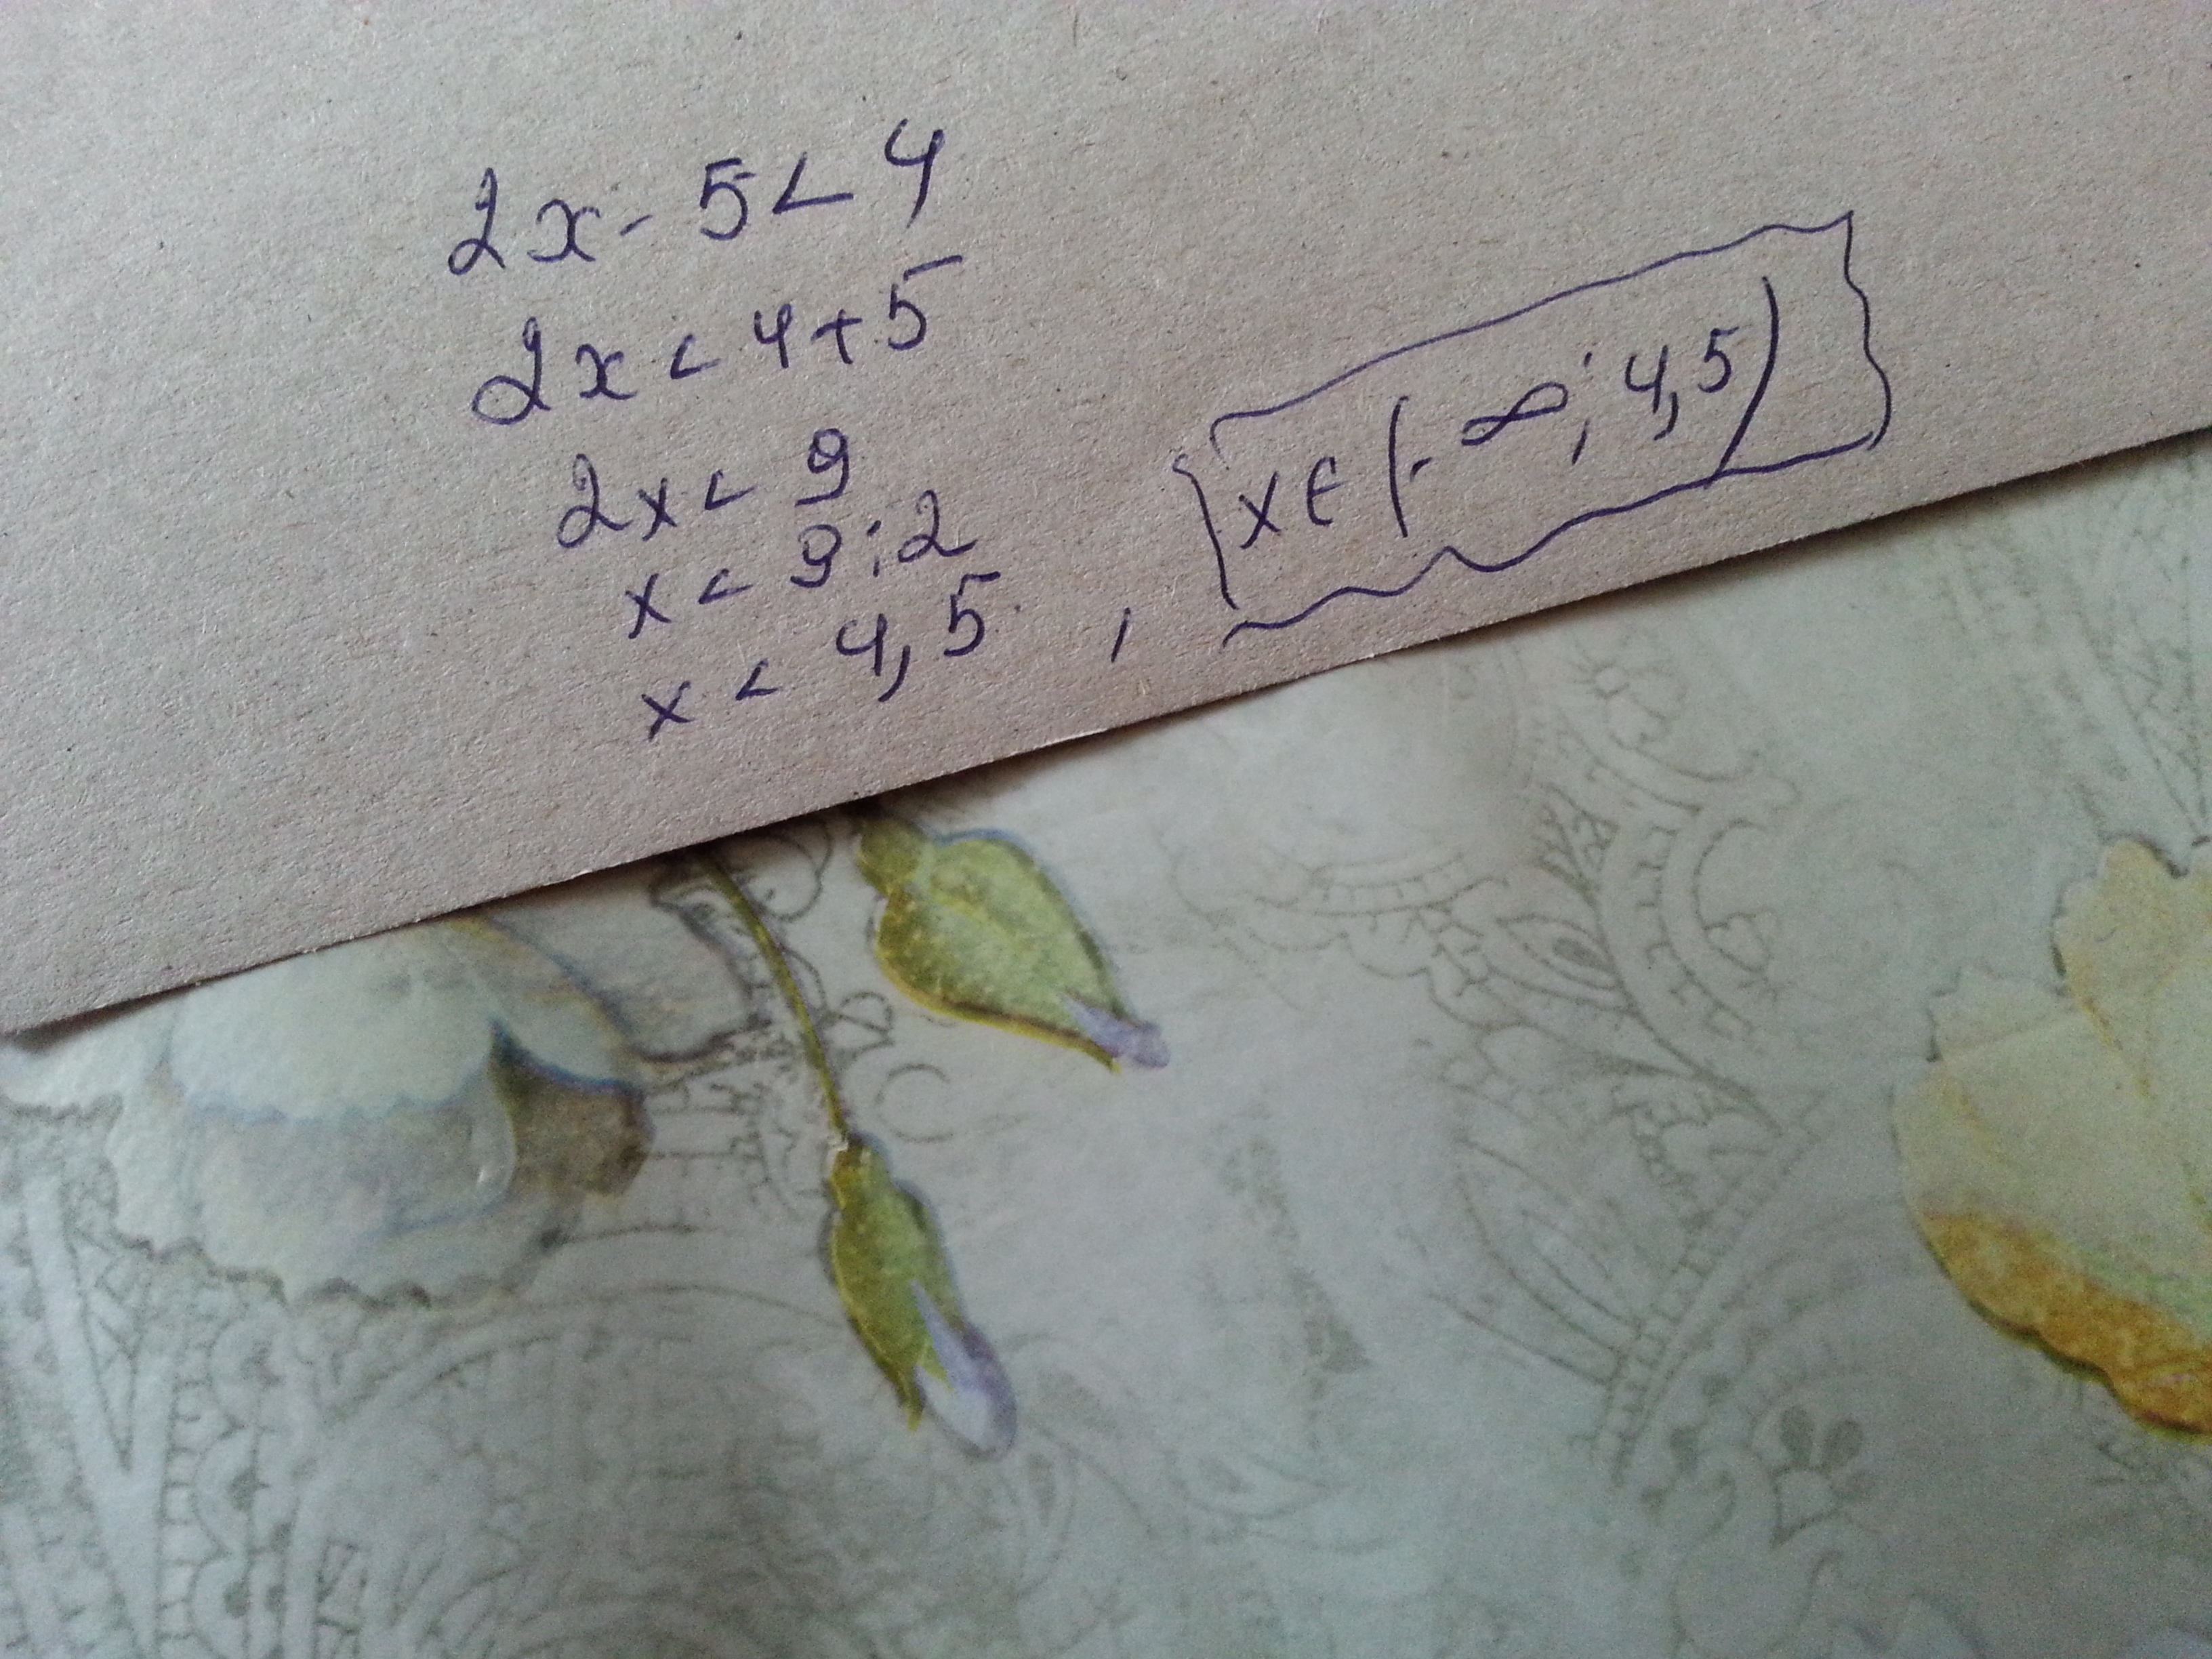 2x - 5 < 4
2x < 4 + 5
2x < 9
x < 9 : 2
x < 4,5 , x ∈ (- ∞ ; 4,5)